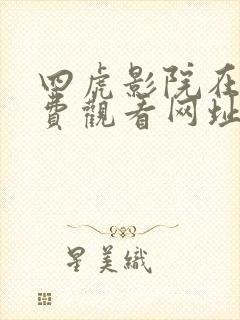 四虎影院在
費觀看网址
星美織